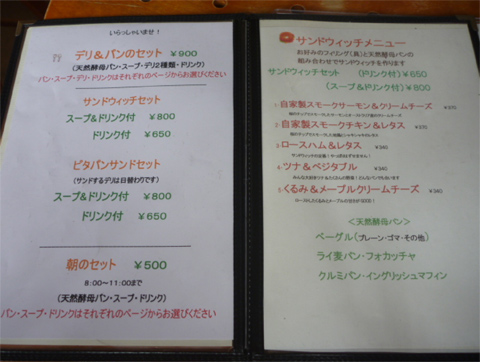 いらっしゃいませ！
デリ＆パンのセット ￥900
(天然酵母パン・スープ・デリ2種類・ドリンク)
パン・スープ・デリ・ドリンクはそれぞれのページからお選びください
サンドウィッチセット
スープ＆ドリンク付 ￥800
ドリンク付 ￥650
ピタパンサンドセット
(サンドするデリは日替わりです)
スープ＆ドリンク付 ￥800
ドリンク付 ￥650
朝のセット ￥500
8:00～11:00まで
(天然酵母パン・スープ・ドリンク)
パン・スープ・ドリンクはそれぞれのページからお選びください
サンドウィッチメニュー
お好みのフィリング(具)と天然酵母パンの
組み合わせでサンドウィッチを作ります
サンドウィッチセット (ドリンク付)￥650
(スープ＆ドリンク付)￥800
1 自家製スモークサーモン＆クリームチーズ ￥370
2 自家製スモークチキン＆レタス ￥370
3 ロースハム＆レタス ￥340
4 ツナ＆ベジタブル ￥340
5 くるみ＆メープルクリームチーズ ￥340
＜天然酵母パン＞
ベーグル(プレーン・ゴマ・その他)
ライ麦パン・フォカッチャ
クルミパン・イングリッシュマフィン